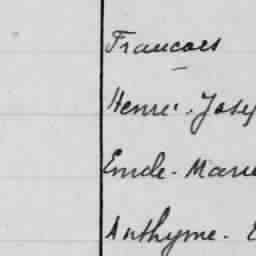 Francois
Henri-Josep
Emile-Marie
Anthyme-E